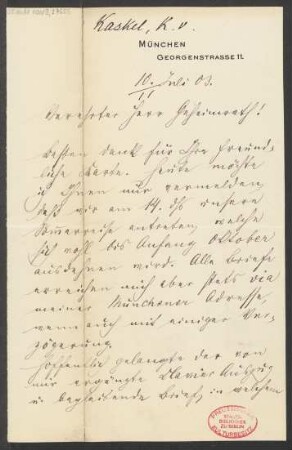 Kaskel, K. v.
MÜNCHEN
GEORGENSTRASSE 11.
10. Juli 03.
Verehrter Herr Geheimrath!
Besten Dank für Ihre freund-
liche Karte. Heute möchte
ich Ihnen nur vermelden,
daß wir am 14. ds unsere
Sommerreise antreten, welche
sich wohl bis Anfang Oktober
ausdehnen wird. Alle Briefe
erreichen mich aber stets via
meiner Münchener Adresse,
wenn auch mit einiger Ver-
zögerung.
Hoffentlich gelangte der von
mir Clavier Auszug
u. begleitende Brief, in welchem
PREUSSISCHER
KULTURBESITZ